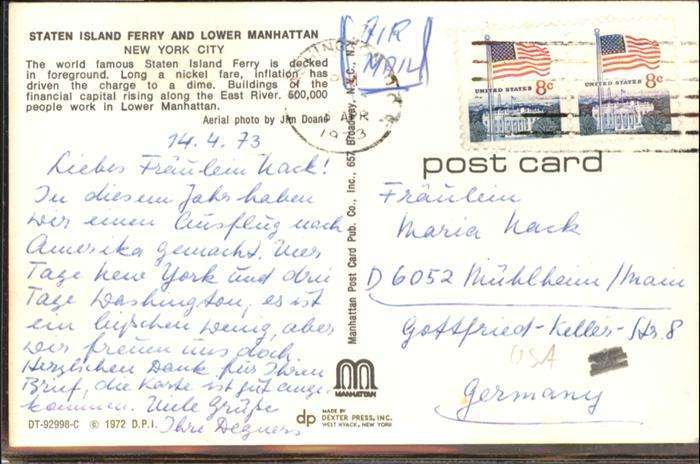 STATEN ISLAND FERRY AND LOWER MANHATTAN
NEW YORK CITY
The world famous Staten Island Ferry is decked
in foreground. Long a nickel fare, inflation has
driven the charge to a dime. Buildings of the
financial capital rising along the East River. 500,000
people work in Lower Manhattan.
Aerial photo by Jim Doane
14.4.73
Liebes Fräulein Nack!
In diesem Jahr haben
wir einen Ausflug nach
Amerika gemacht. Vier
Tage New York und drei
Tage Washington, es ist
ein bißchen wenig, aber
wir freuen uns doch
Herzlichen Dank für Ihren
Brief, die Karte ist gut ange-
kommen. Viele Grüße
Ihre Degners
DT-92998-C © 1972 D.P.I.
Manhattan Post Card Pub. Co., Inc., 657 Broadway, N.Y.C., N.Y.
MANHATTAN
dp MADE BY
DEXTER PRESS, INC.
WEST NYACK, NEW YORK
AIR
MAIL
APR
1973
UNITED STATES 8c
UNITED STATES 8c
post card
Fräulein
Maria Nack
D 6052 Mühlheim/Main
Gottfried-Keller-Str. 8
USA
Germany